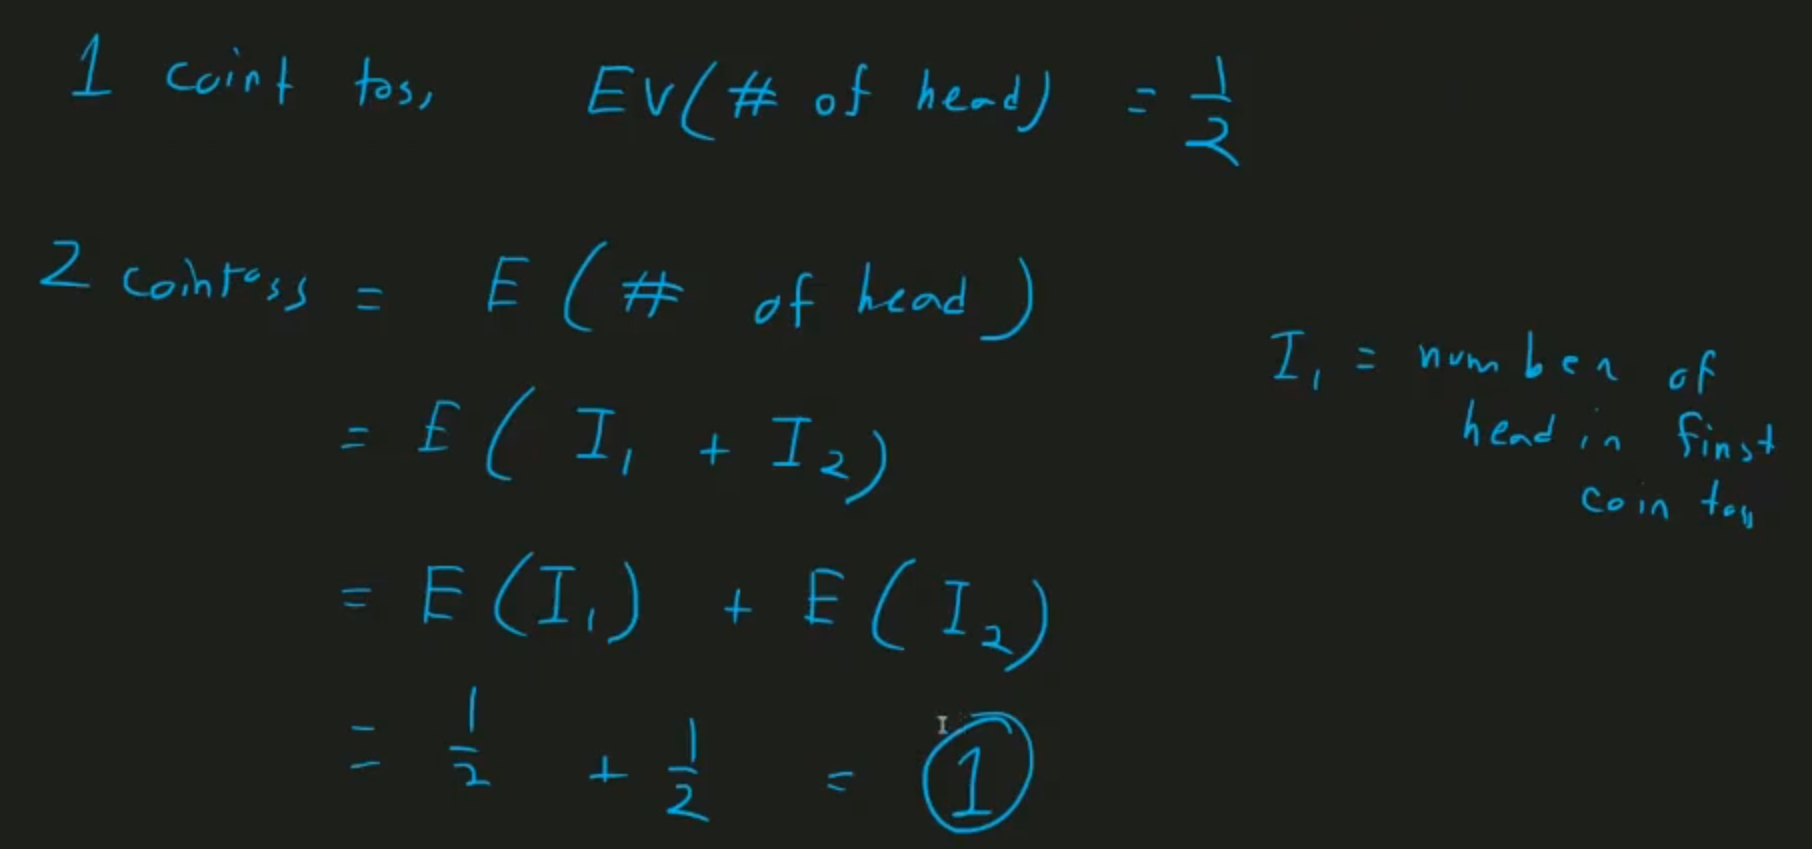 1 coint tos, EV(# of head) = 1/2
2 cointoss = E(# of head)
= E(I₁ + I₂)
= E(I₁) + E(I₂)
= 1/2 + 1/2 = 1
I₁ = number of
head in first
coin toss